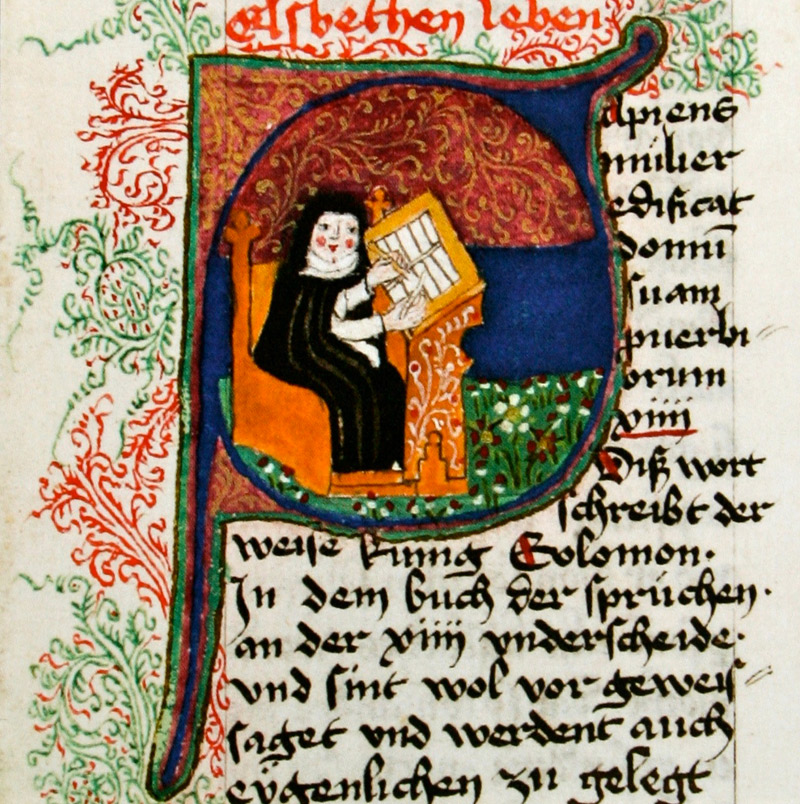 elsbethen leben
apiens
mulier
edificat
domū
suam
puerbi
orum
xiiii
Diß wort
schreibt der
weise kunig Solomon.
In dem buch der sprüchen.
an der xiiii vnderscheide.
vnd sint wol vor geweis
saget vnd werdent auch
eÿgenlichen zu gelegt